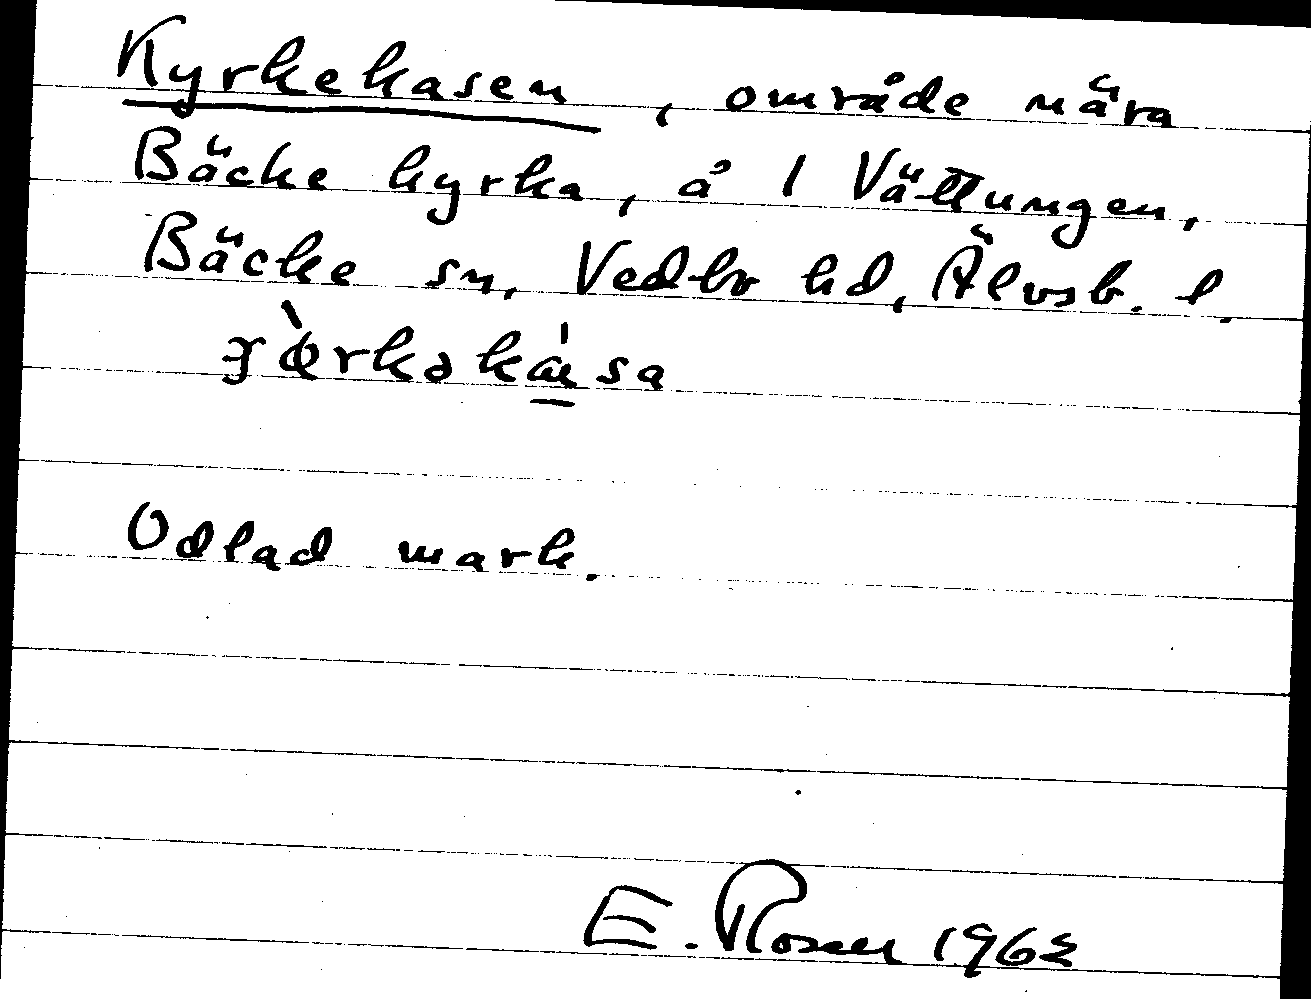 Kyrkekasen, område nära
Bäcke kyrka, å 1 Vättungen,
Bäcke sn, Vedbo hd, Älvsb. l.
Odlad mark.
E. Rosell 1962